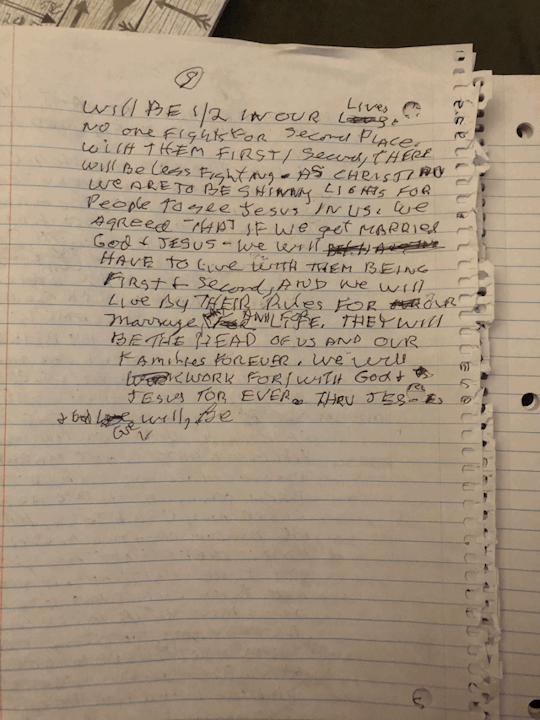 9
WILL BE 1/2 IN OUR Lives
NO ONE FIGHTS FOR Second PLACE.
WITH THEM FIRST/Second, THERE
will Be Less Fighting - AS CHRISTIAN
WE ARE TO BE SHINNY LIGHTS FOR
People To see Jesus IN US. WE
AGREED THAT IF WE get MARRIED
God & JESUS - WE WILL
HAVE TO LIVE WITH THEM BEING
FIRST & Second, AND WE WILL
LIVE BY THEIR RULES FOR OUR
Marriage AND FOR LIFE. THEY WILL
BE THE HEAD OF US AND OUR
FAMILIES FOREVER. WE WILL
WORK FOR/WITH GOD &
JESUS FOR EVER. THRU JES
& God will, Be